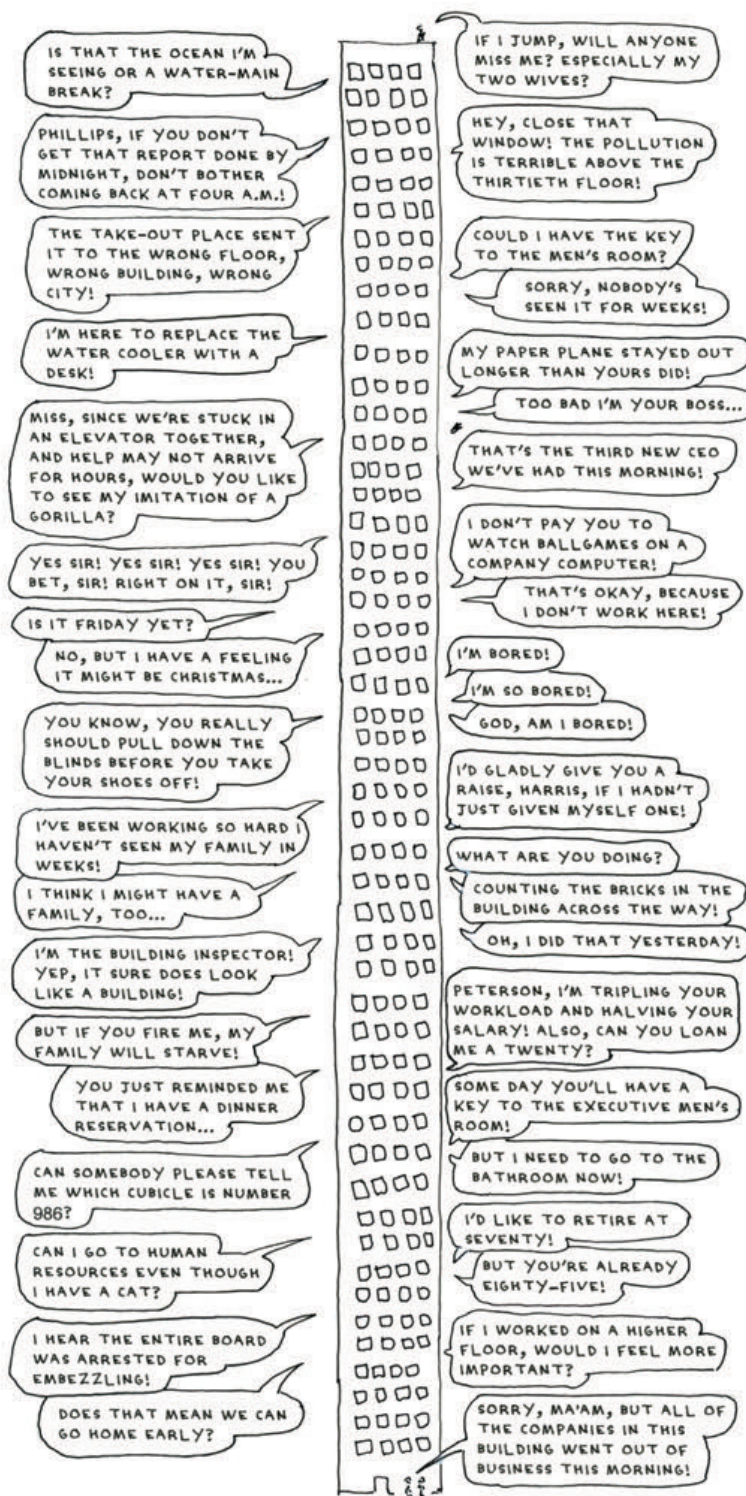 IS THAT THE OCEAN I'M
SEEING OR A WATER-MAIN
BREAK?
PHILLIPS, IF YOU DON'T
GET THAT REPORT DONE BY
MIDNIGHT, DON'T BOTHER
COMING BACK AT FOUR A.M.!
THE TAKE-OUT PLACE SENT
IT TO THE WRONG FLOOR,
WRONG BUILDING, WRONG
CITY!
I'M HERE TO REPLACE THE
WATER COOLER WITH A
DESK!
MISS, SINCE WE'RE STUCK IN
AN ELEVATOR TOGETHER,
AND HELP MAY NOT ARRIVE
FOR HOURS, WOULD YOU LIKE
TO SEE MY IMITATION OF A
GORILLA?
YES SIR! YES SIR! YES SIR! YOU
BET, SIR! RIGHT ON IT, SIR!
IS IT FRIDAY YET?
NO, BUT I HAVE A FEELING
IT MIGHT BE CHRISTMAS...
YOU KNOW, YOU REALLY
SHOULD PULL DOWN THE
BLINDS BEFORE YOU TAKE
YOUR SHOES OFF!
I'VE BEEN WORKING SO HARD I
HAVEN'T SEEN MY FAMILY IN
WEEKS!
I THINK I MIGHT HAVE A
FAMILY, TOO...
I'M THE BUILDING INSPECTOR!
YEP, IT SURE DOES LOOK
LIKE A BUILDING!
BUT IF YOU FIRE ME, MY
FAMILY WILL STARVE!
YOU JUST REMINDED ME
THAT I HAVE A DINNER
RESERVATION...
CAN SOMEBODY PLEASE TELL
ME WHICH CUBICLE IS NUMBER
986?
CAN I GO TO HUMAN
RESOURCES EVEN THOUGH
I HAVE A CAT?
I HEAR THE ENTIRE BOARD
WAS ARRESTED FOR
EMBEZZLING!
DOES THAT MEAN WE CAN
GO HOME EARLY?
IF I JUMP, WILL ANYONE
MISS ME? ESPECIALLY MY
TWO WIVES?
HEY, CLOSE THAT
WINDOW! THE POLLUTION
IS TERRIBLE ABOVE THE
THIRTIETH FLOOR!
COULD I HAVE THE KEY
TO THE MEN'S ROOM?
SORRY, NOBODY'S
SEEN IT FOR WEEKS!
MY PAPER PLANE STAYED OUT
LONGER THAN YOURS DID!
TOO BAD I'M YOUR BOSS...
THAT'S THE THIRD NEW CEO
WE'VE HAD THIS MORNING!
I DON'T PAY YOU TO
WATCH BALLGAMES ON A
COMPANY COMPUTER!
THAT'S OKAY, BECAUSE
I DON'T WORK HERE!
I'M BORED!
I'M SO BORED!
GOD, AM I BORED!
I'D GLADLY GIVE YOU A
RAISE, HARRIS, IF I HADN'T
JUST GIVEN MYSELF ONE!
WHAT ARE YOU DOING?
COUNTING THE BRICKS IN THE
BUILDING ACROSS THE WAY!
OH, I DID THAT YESTERDAY!
PETERSON, I'M TRIPLING YOUR
WORKLOAD AND HALVING YOUR
SALARY! ALSO, CAN YOU LOAN
ME A TWENTY?
SOME DAY YOU'LL HAVE A
KEY TO THE EXECUTIVE MEN'S
ROOM!
BUT I NEED TO GO TO THE
BATHROOM NOW!
I'D LIKE TO RETIRE AT
SEVENTY!
BUT YOU'RE ALREADY
EIGHTY-FIVE!
IF I WORKED ON A HIGHER
FLOOR, WOULD I FEEL MORE
IMPORTANT?
SORRY, MA'AM, BUT ALL OF
THE COMPANIES IN THIS
BUILDING WENT OUT OF
BUSINESS THIS MORNING!